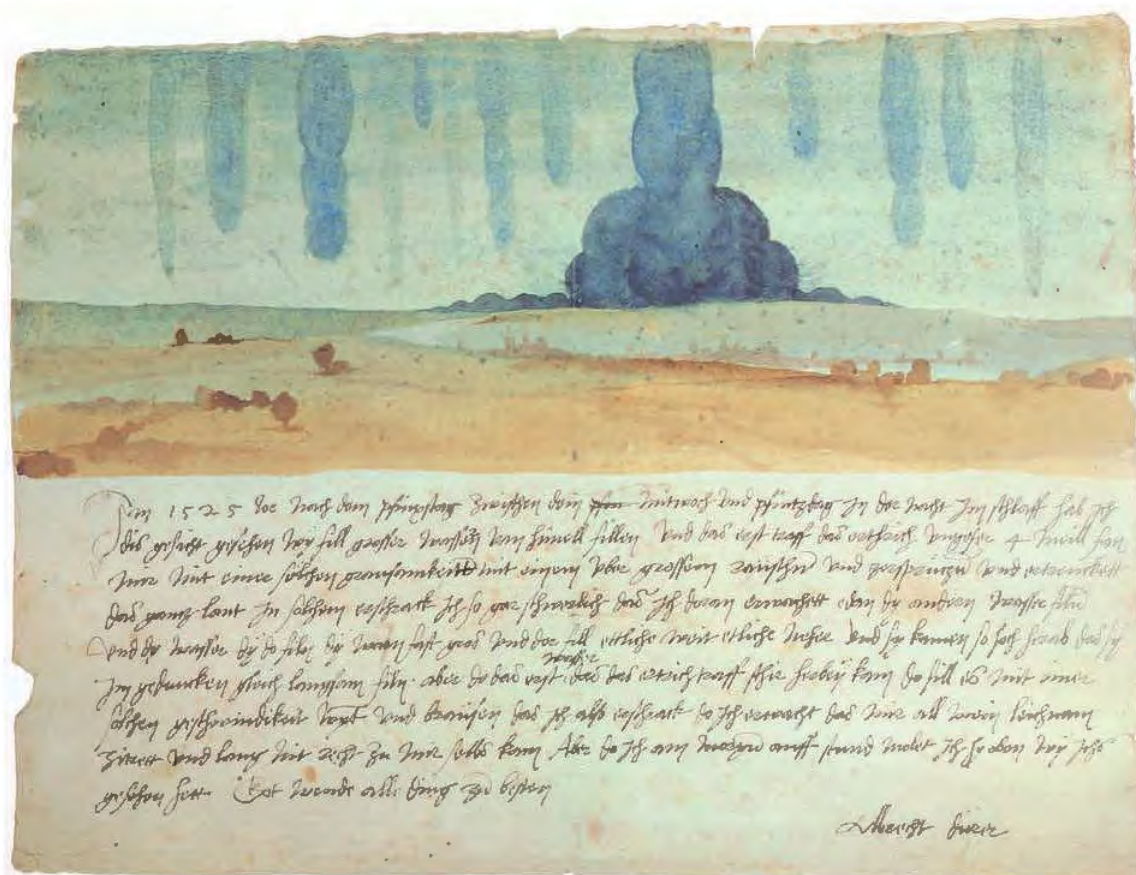 Im 1525 Jor nach dem pfinxstag zwischen dem Mitwoch und pfintzdag in der nacht im schlaff hab ich
dis gesicht gesehen wy fill grosser wassern vom himell fillen Und das erst traff das erthrich ungefer 4 meill fan
mir mit einer solchen grausamkeitt mit einem uber grossem raüschn und zersprützn und ertrenckett
das gantz lant In solchem erschrack ich so gar schwerlich das ich doran erwachett edan dy andern wasser filn
Und dy wasser dy do filn dy warn fast gros und der fill ettliche weit etliche neher und sy kamen so hoch herab das sy
im gedancken gleich langsam filn aber do das erst wasser das das ertrich traff schir herbey kam do fill es mit einer
solchen geschwindikeit wynt und braüsen das ich also erschrack do ich erwacht das mir all mein leichnam
zitrett und lang nit recht zu mir selbs kam Aber do ich am morgn auff stund molet ich hy oben wy ichs
gesehen hett Got wende alle ding zu besten
Albrecht Dürer